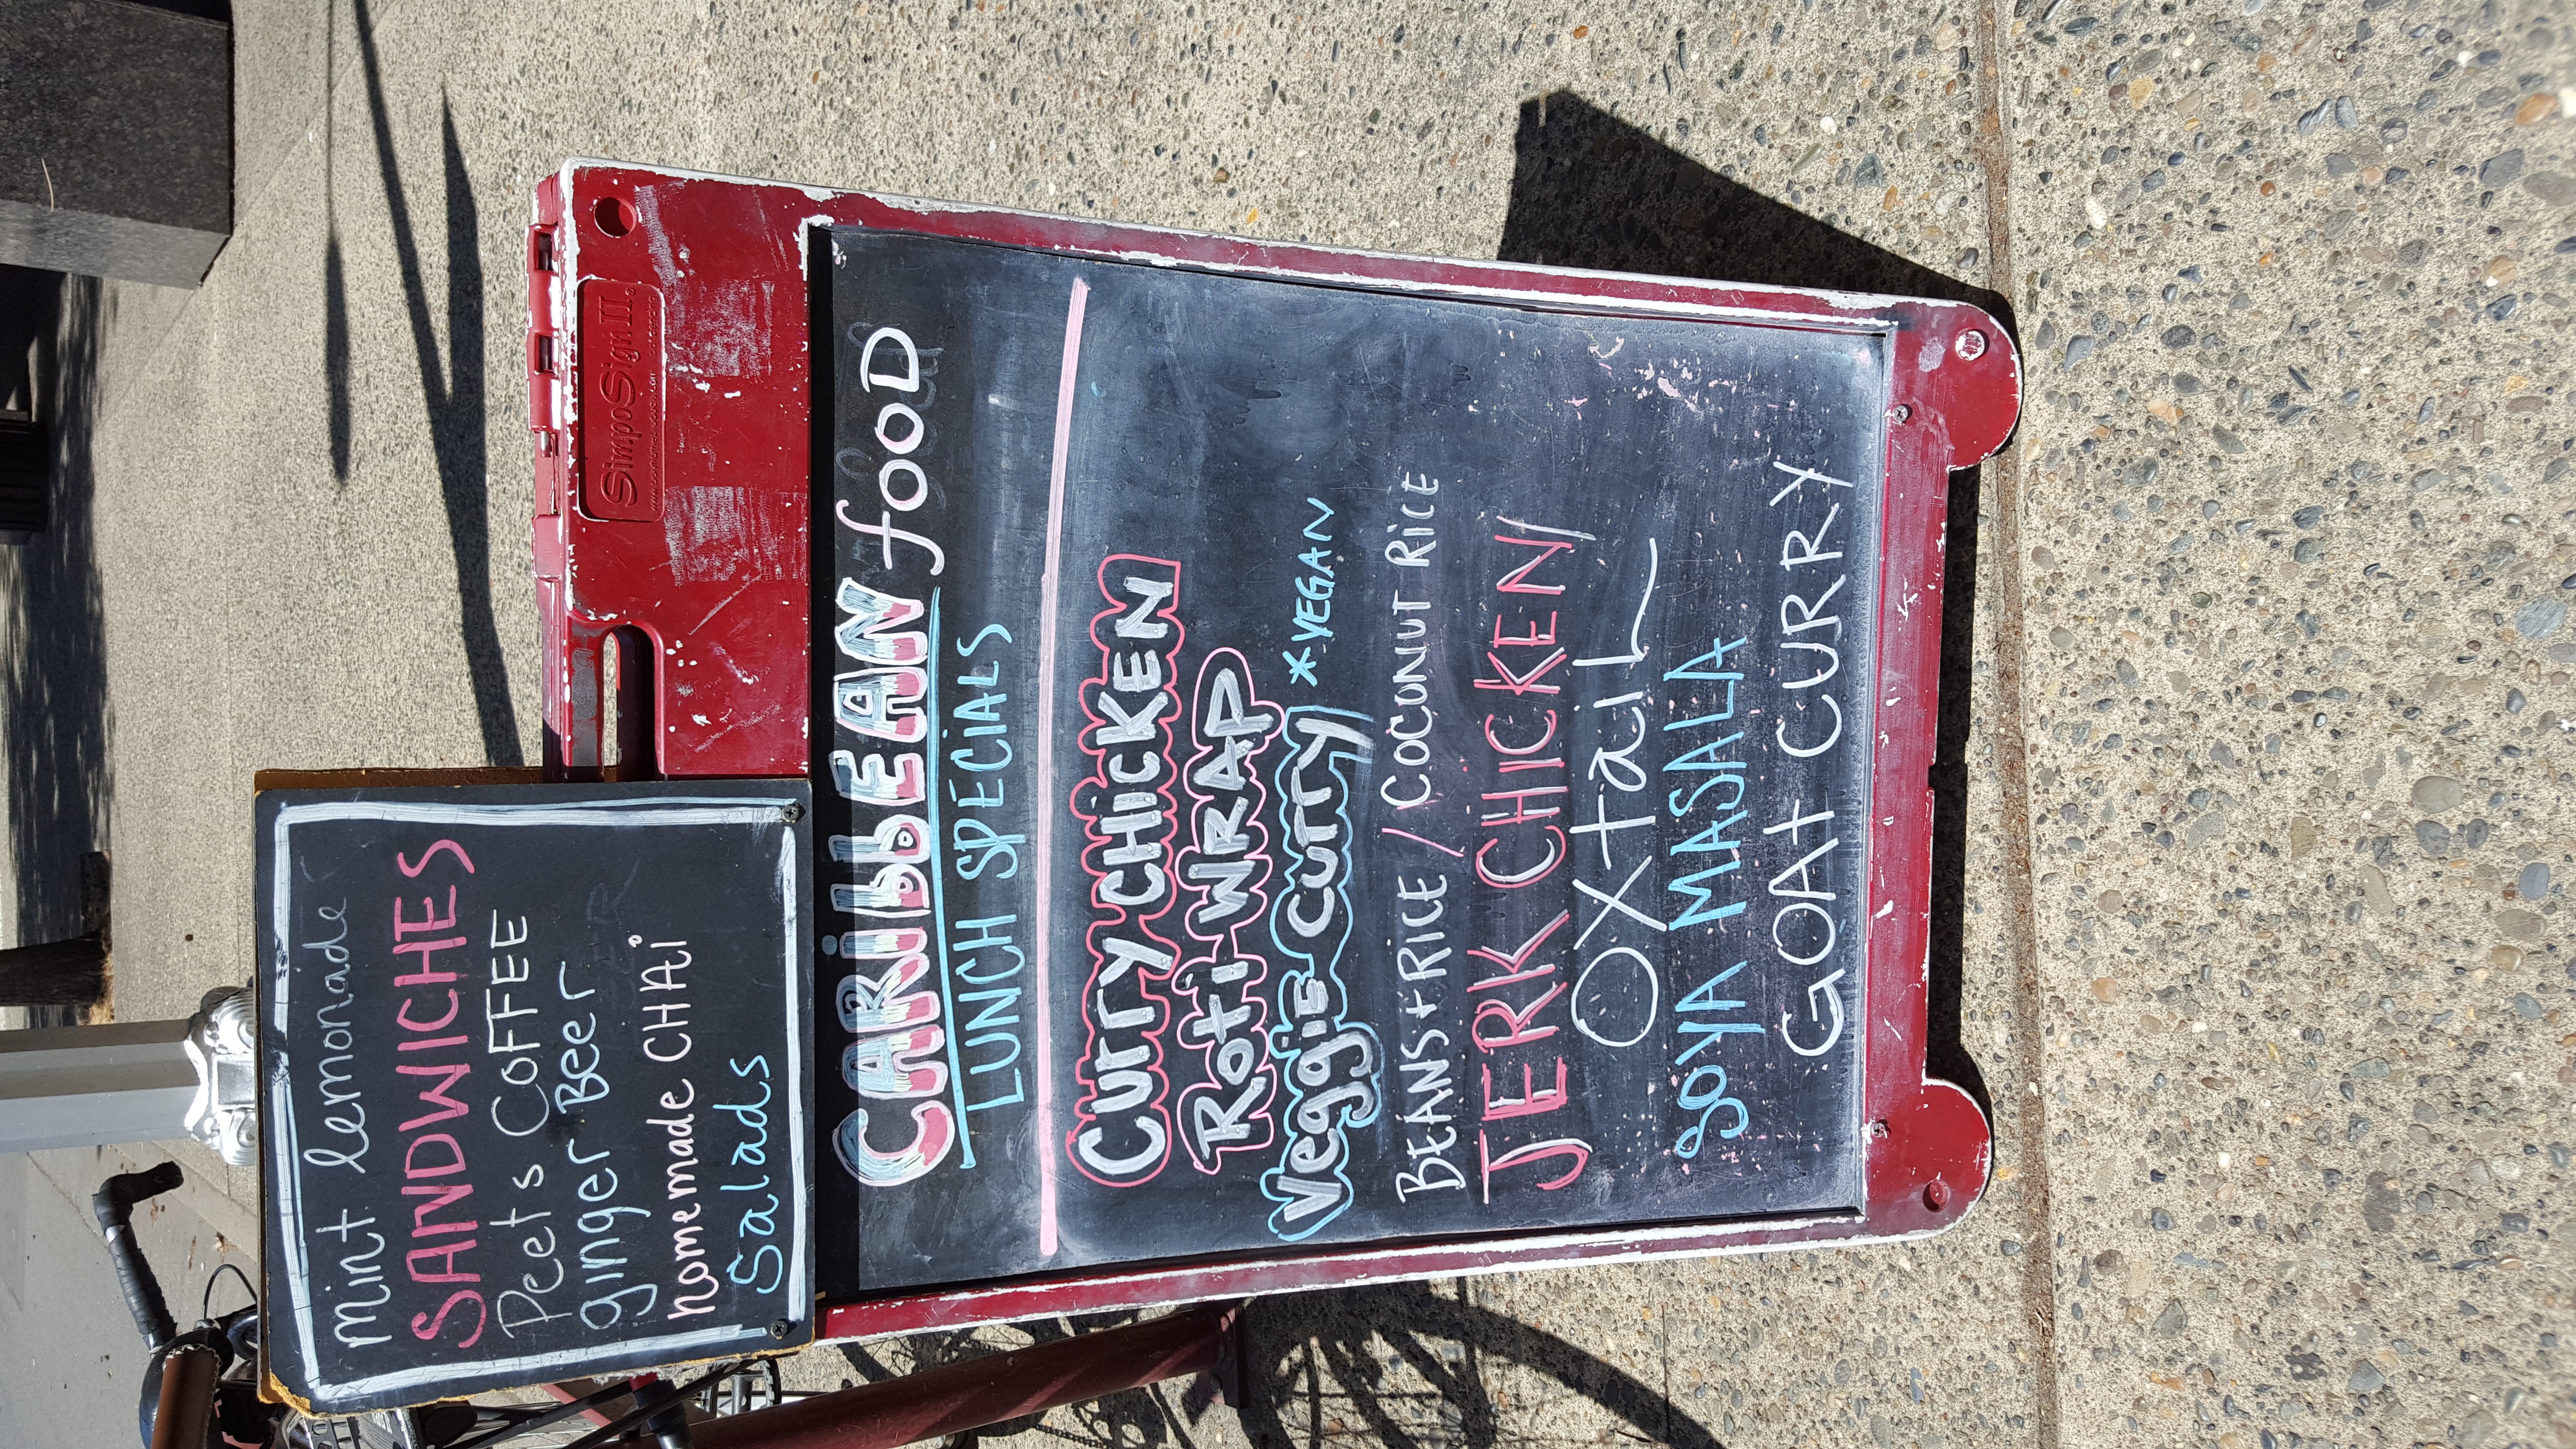 mint lemonade
SANDWICHES
Peets COFFEE
ginger Beer
homemade CHAi
Salads
SimpoSign II®
CARibbEAN fOOD
LUNCH SPECiALS
Curry CHicKEN
Roti-WRAP
Veggie Curry *VEGAN
BEANS+RICE / COCONUT RICE
JERK CHICKEN
OXtaiL
SOYA MASALA
GOAt CURRY